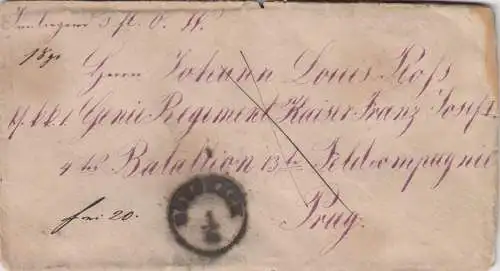 Inliegend 3 fl. O. W.
Herrn Johann Louis Roß
k. k. 1. Genie Regiment Kaiser Franz Josef
4tes Batallion 13te Feldcompagnie
frei 20.
Prag.